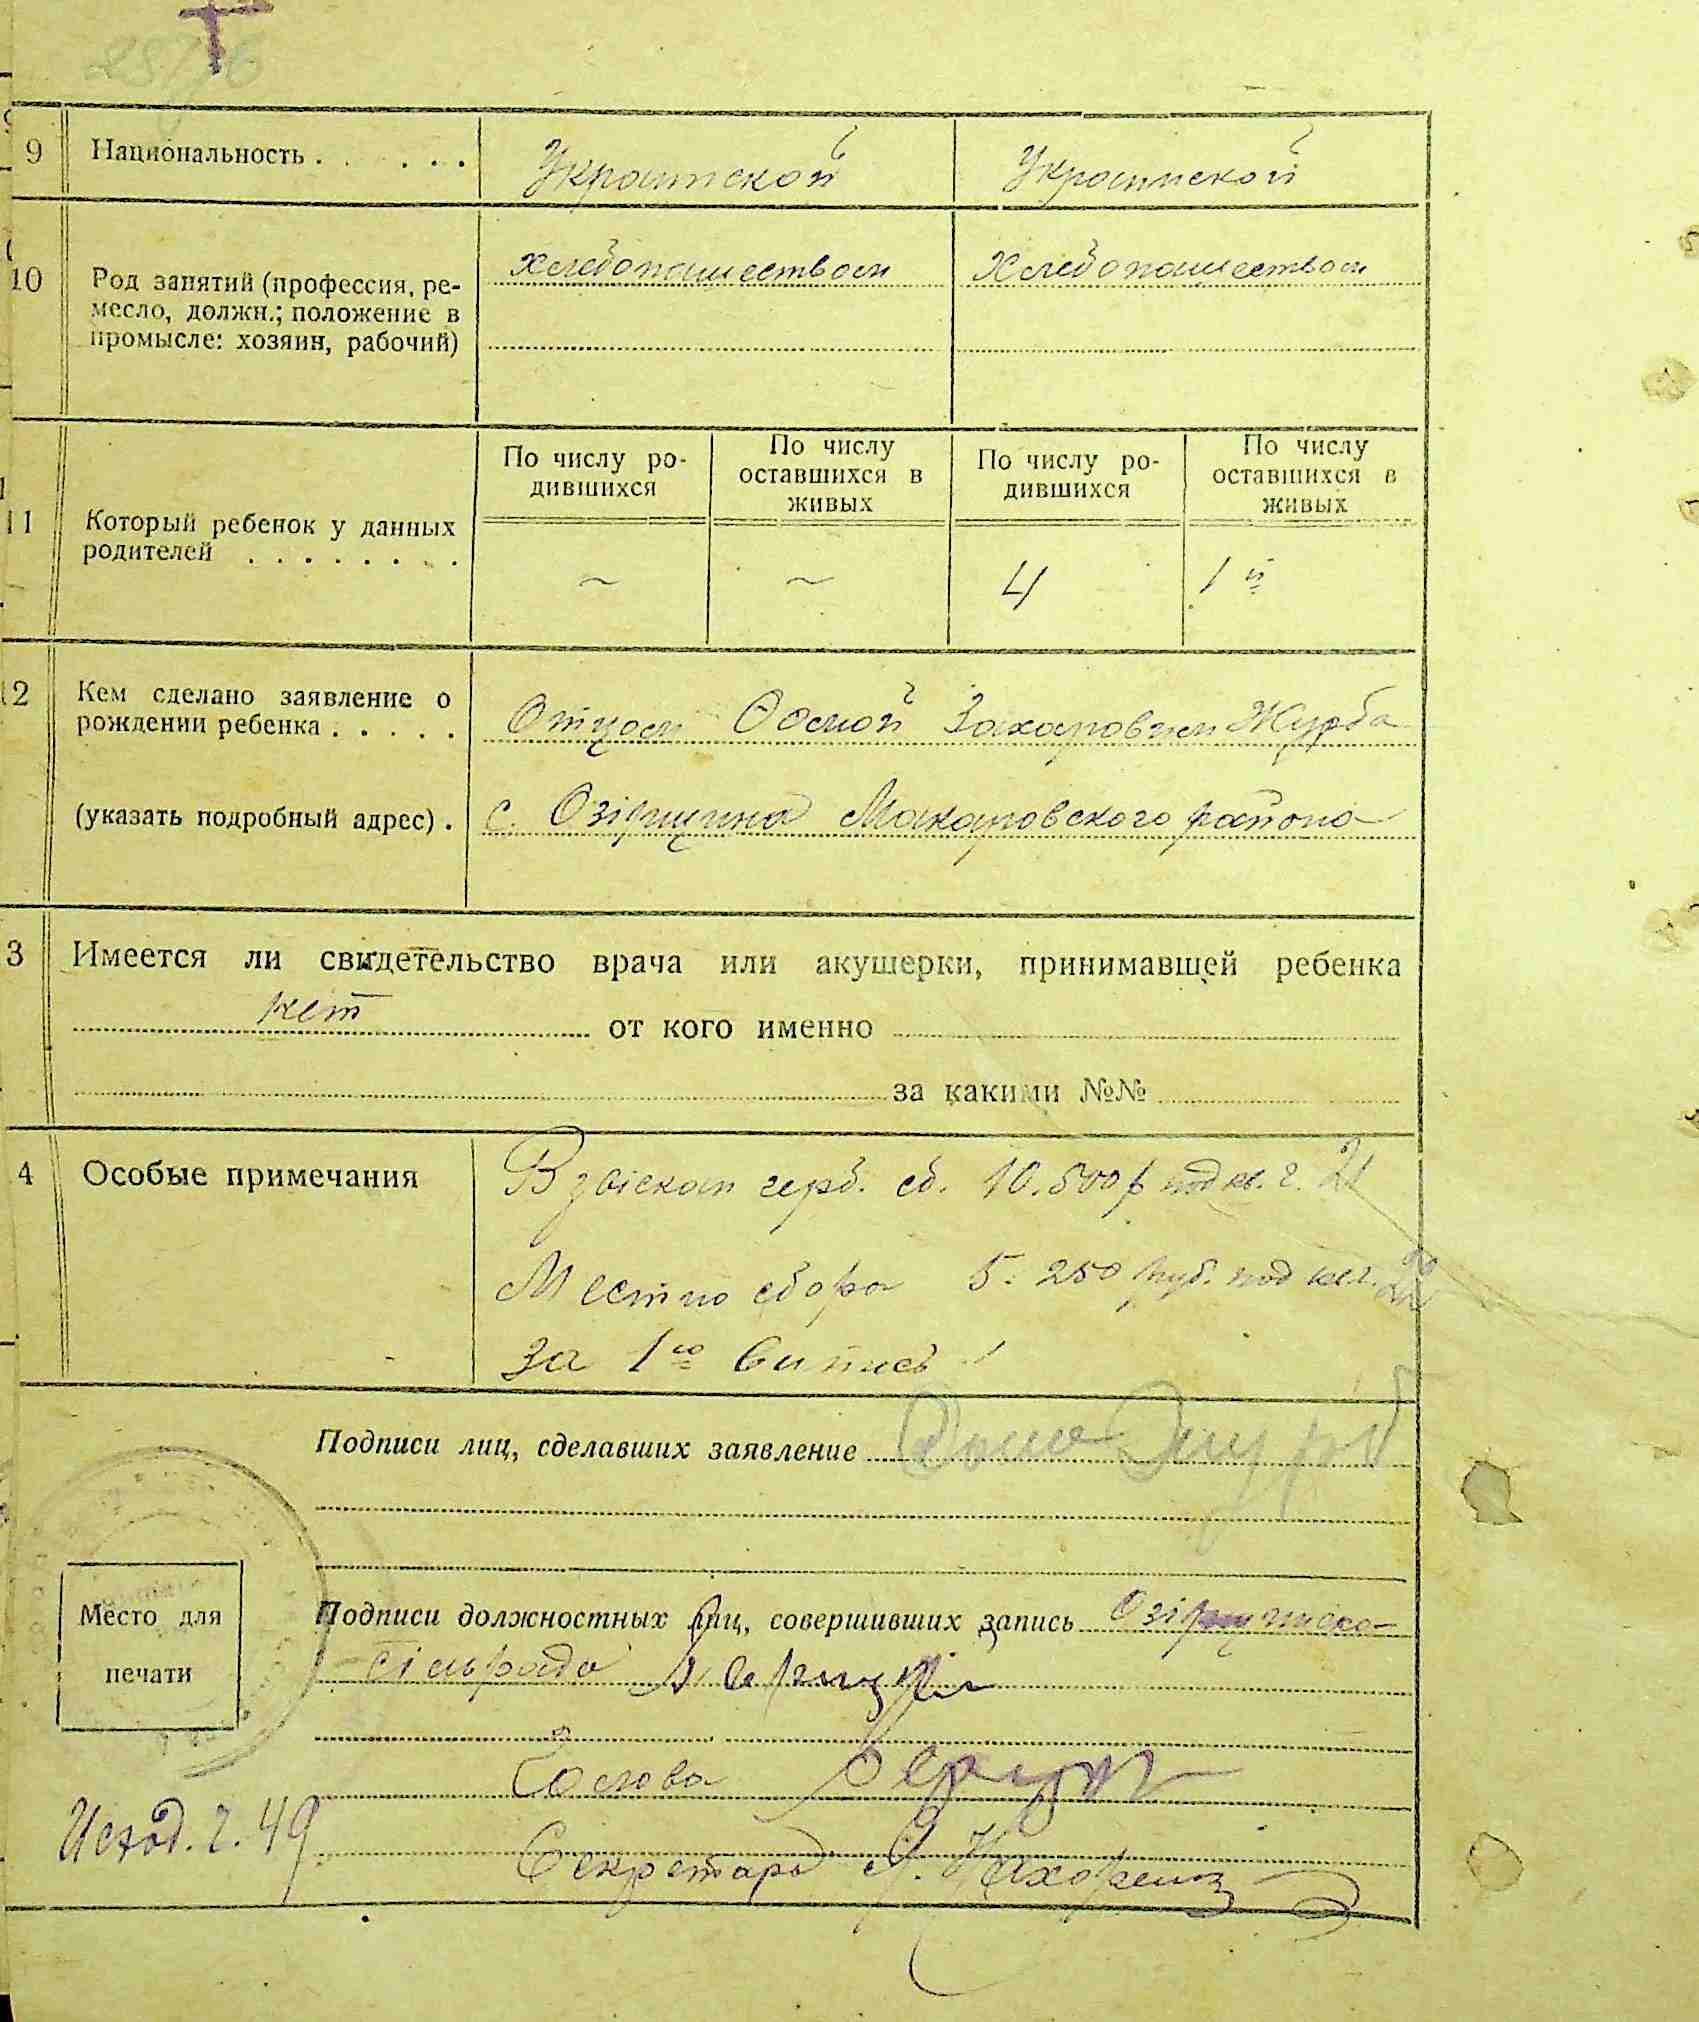 9 Национальность . . . . . . Украинской Украинской
10 Род занятий (профессия, ре-
месло, должн.; положение в
промысле: хозяин, рабочий)
хлебопашеством Хлебопашеством
11 Который ребенок у данных
родителей . . . . . . . .
По числу ро-
дившихся
По числу
оставшихся в
живых
По числу ро-
дившихся
По числу
оставшихся в
живых
~ ~ 4 1й
12 Кем сделано заявление о
рождении ребенка . . . . .
Отцом Фомой Захаровичем Журба
(указать подробный адрес) . с. Озірщина Макаровского района
3 Имеется ли свидетельство врача или акушерки, принимавшей ребенка
нет от кого именно
за какими №№
4 Особые примечания
Взыскан герб. сб. 10.500 р под кв. г. 21
Местно сбора 5. 250 руб. под кв. г. 22
За 1ю випись
Подписи лиц, сделавших заявление
Подписи должностных лиц, совершивших запись
Место для
печати
Голова
Исход. г. 49
Секретарь